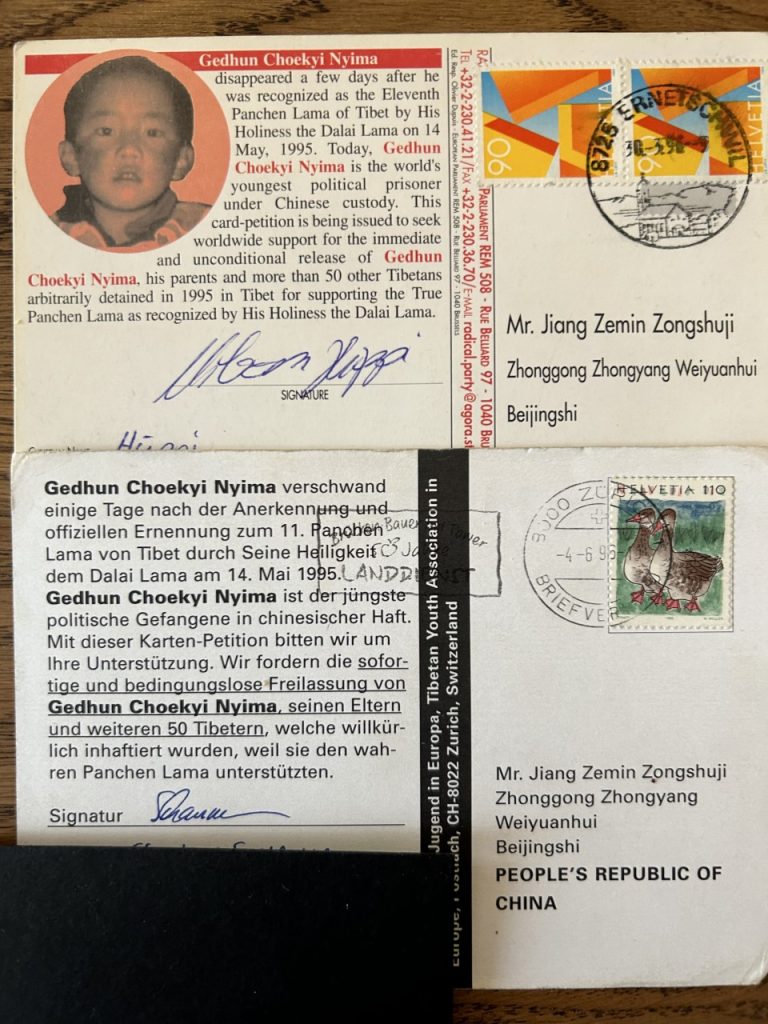 Gedhun Choekyi Nyima
disappeared a few days after he
was recognized as the Eleventh
Panchen Lama of Tibet by His
Holiness the Dalai Lama on 14
May, 1995. Today, Gedhun
Choekyi Nyima is the world's
youngest political prisoner
under Chinese custody. This
card-petition is being issued to seek
worldwide support for the immediate
and unconditional release of Gedhun
Choekyi Nyima, his parents and more than 50 other Tibetans
arbitrarily detained in 1995 in Tibet for supporting the True
Panchen Lama as recognized by His Holiness the Dalai Lama.
SIGNATURE
PARLIAMENT REM 508 - RUE BELLIARD 97 - 1040
TEL +32-2-230.41.21/FAX +32-2-230.36.70/E-MAIL radical.party@agora.
Ed. Resp. Olivier Dupuis - EUROPEAN PARLIAMENT REM 508 - RUE BELLIARD 97 - 1040 BRUSSELS
90
HELVETIA
8726 ERNETSCHWIL
Mr. Jiang Zemin Zongshuji
Zhonggong Zhongyang Weiyuanhui
Beijingshi
Gedhun Choekyi Nyima verschwand
einige Tage nach der Anerkennung und
offiziellen Ernennung zum 11. Panchen
Lama von Tibet durch Seine Heiligkeit
dem Dalai Lama am 14. Mai 1995.
Gedhun Choekyi Nyima ist der jüngste
politische Gefangene in chinesischer Haft.
Mit dieser Karten-Petition bitten wir um
Ihre Unterstützung. Wir fordern die sofor-
tige und bedingungslose Freilassung von
Gedhun Choekyi Nyima, seinen Eltern
und weiteren 50 Tibetern, welche willkür-
lich inhaftiert wurden, weil sie den wah-
ren Panchen Lama unterstützten.
Signatur
Jugend in Europa, Tibetan Youth Association in
Europe, Postfach, CH-8022 Zurich, Switzerland
LANDDIENST
8000 ZÜRICH
-4-6.96-
BRIEFVER
HELVETIA 110
Mr. Jiang Zemin Zongshuji
Zhonggong Zhongyang
Weiyuanhui
Beijingshi
PEOPLE'S REPUBLIC OF
CHINA